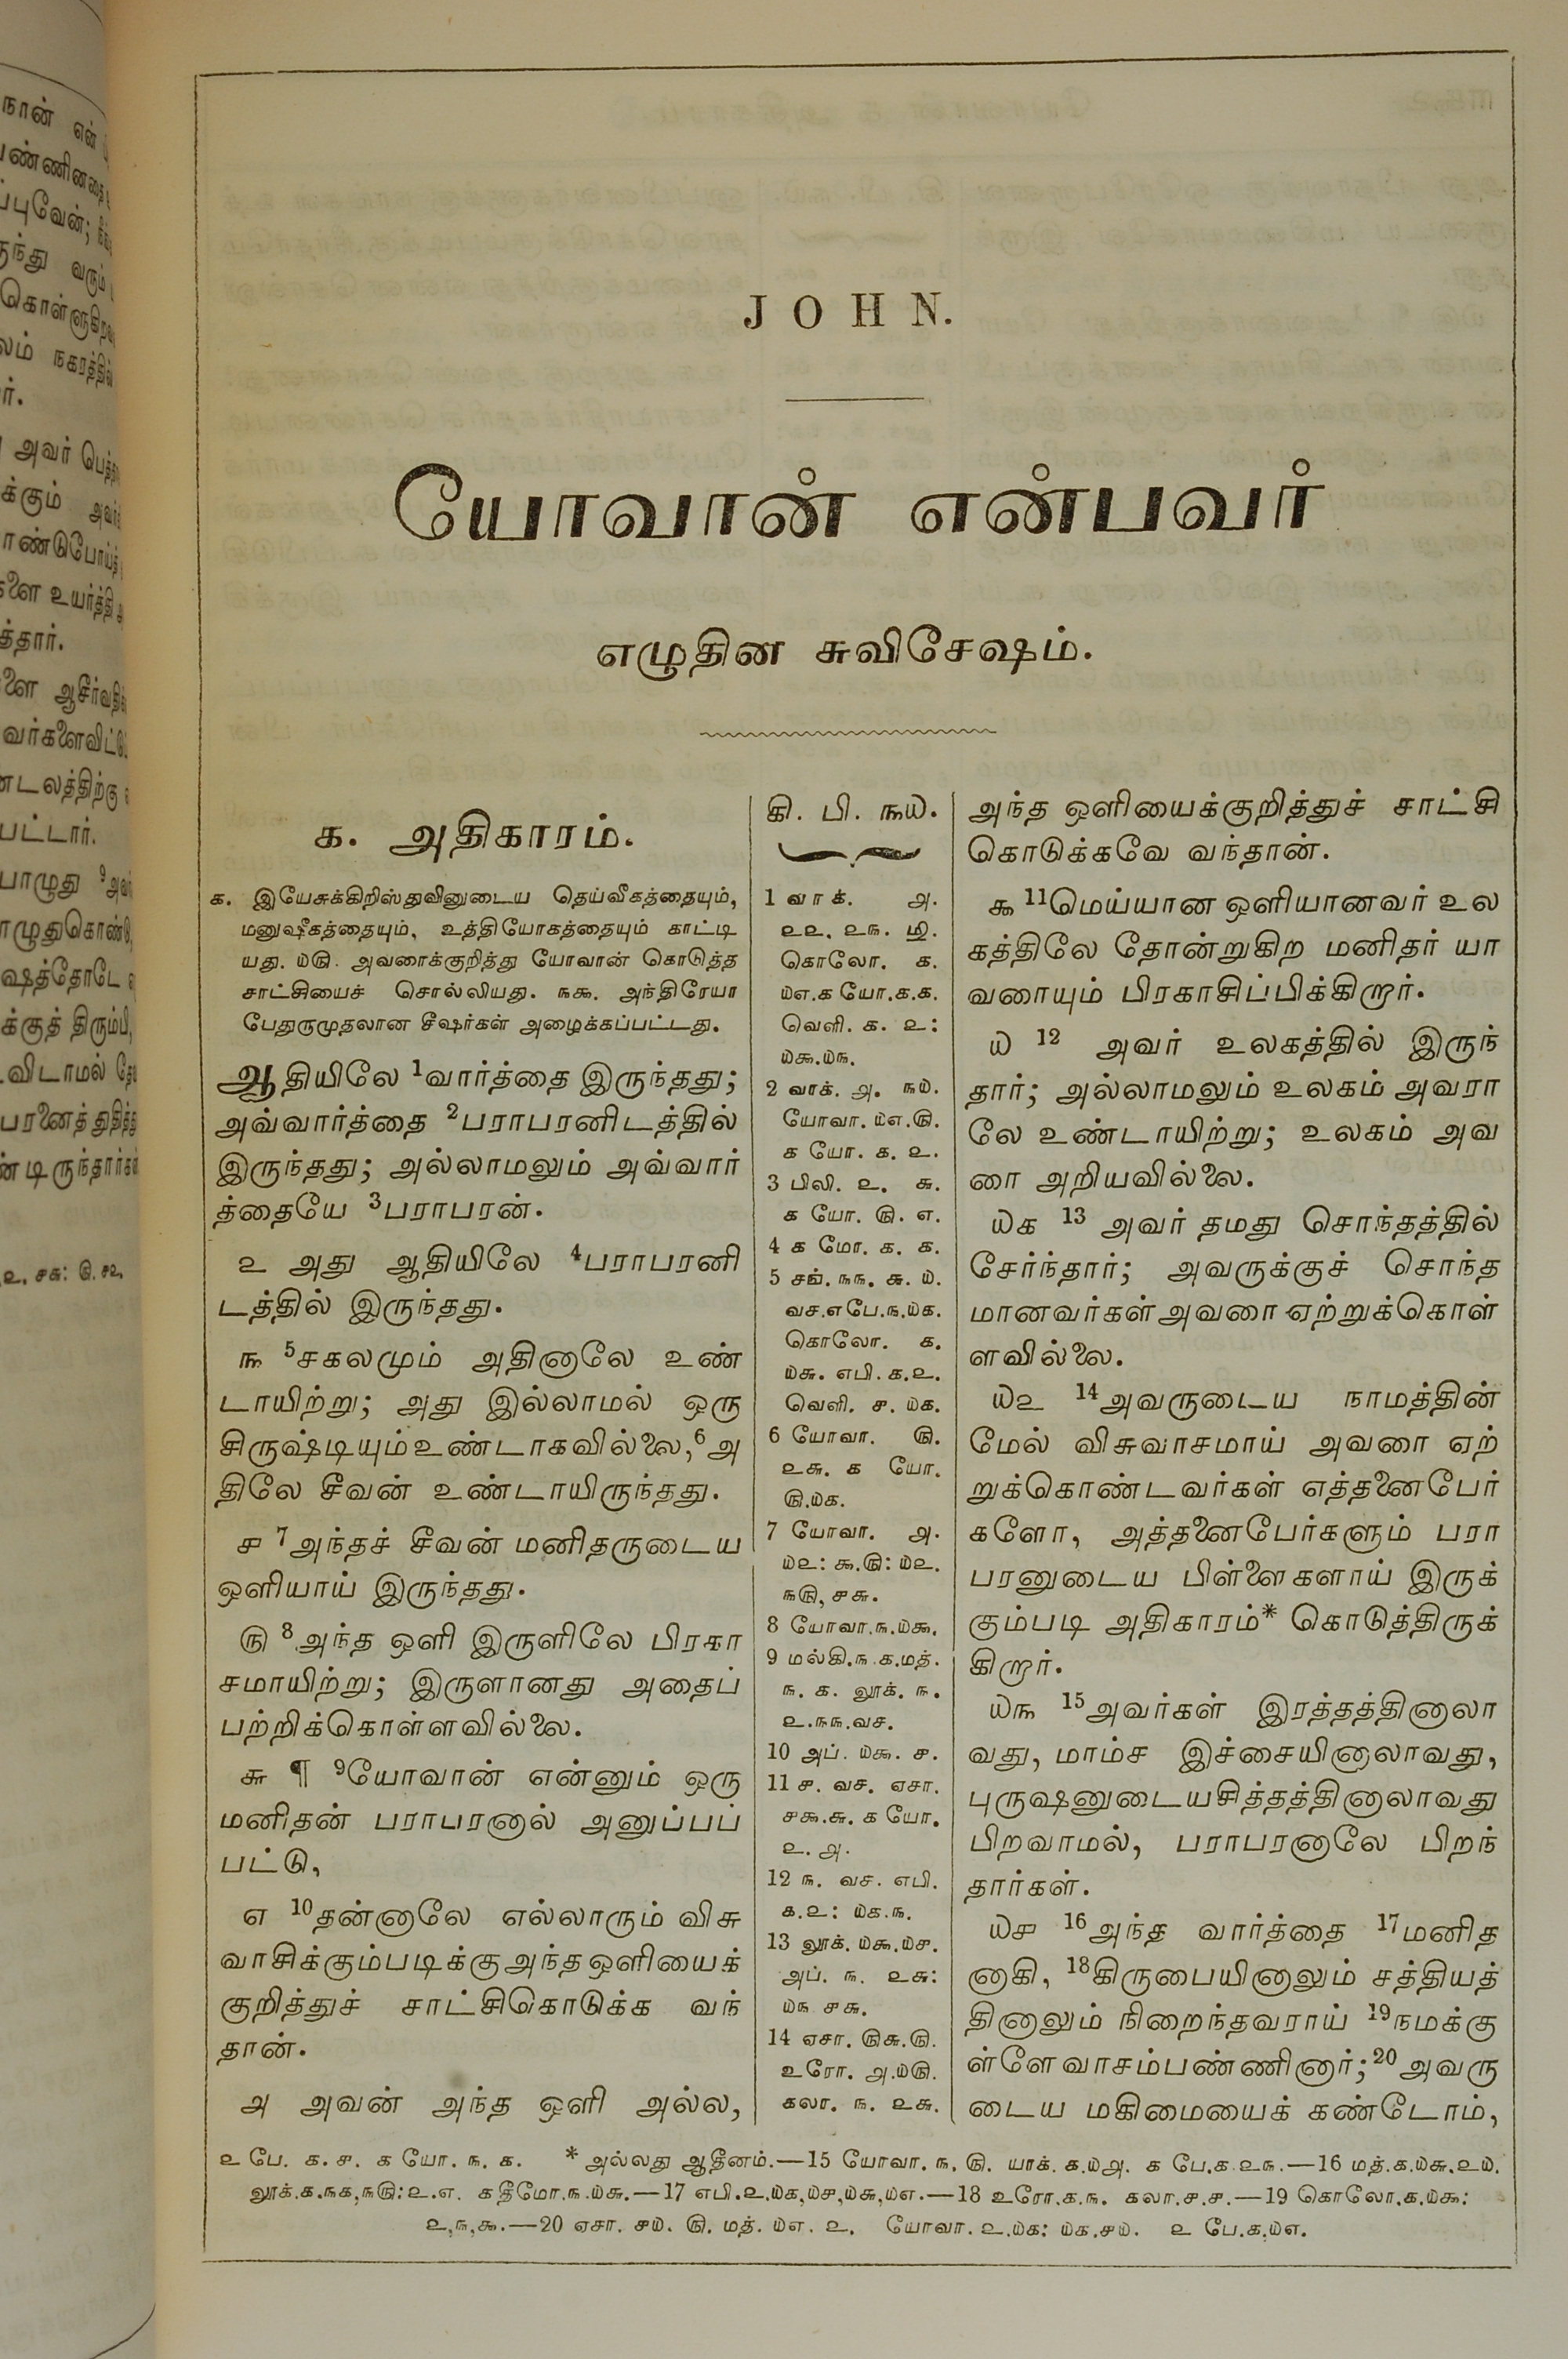 JOHN.
யோவான் என்பவர்
எழுதின சுவிசேஷம்.
க. அதிகாரம்.
க. இயேசுக்கிறிஸ்துவினுடைய தெய்வீகத்தையும்,
மனுஷீகத்தையும், உத்தியோகத்தையும் காட்டி
யது. ௰௫. அவரைக்குறித்து யோவான் கொடுத்த
சாட்சியைச் சொல்லியது. ௩௯. அந்திரேயா
பேதுருமுதலான சீஷர்கள் அழைக்கப்பட்டது.
ஆதியிலே 1வார்த்தை இருந்தது;
அவ்வார்த்தை 2பராபரனிடத்தில்
இருந்தது; அல்லாமலும் அவ்வார்
த்தையே 3பராபரன்.
௨ அது ஆதியிலே 4பராபரனி
டத்தில் இருந்தது.
௩ 5சகலமும் அதினாலே உண்
டாயிற்று; அது இல்லாமல் ஒரு
சிருஷ்டியும் உண்டாகவில்லை, 6அ
திலே சீவன் உண்டாயிருந்தது.
௪ 7அந்தச் சீவன் மனிதருடைய
ஒளியாய் இருந்தது.
௫ 8அந்த ஒளி இருளிலே பிரகா
சமாயிற்று; இருளானது அதைப்
பற்றிக்கொள்ளவில்லை.
௬ ¶ 9யோவான் என்னும் ஒரு
மனிதன் பராபரனால் அனுப்பப்
பட்டு,
௭ 10தன்னாலே எல்லாரும் விசு
வாசிக்கும்படிக்கு அந்த ஒளியைக்
குறித்துச் சாட்சிகொடுக்க வந்
தான்.
௮ அவன் அந்த ஒளி அல்ல,
கி. பி. ௩௰.
1 வாக். ௮.
௨௨. ௨௩. மீ.
கொலோ. க.
௰௭.க யோ.க.க.
வெளி. க. ௨:
௰௯.௰௩.
2 வாக். ௮. ௩௰.
யோவா. ௰௭.௫.
க யோ. க. ௨.
3 பிலி. ௨. ௬.
க யோ. ௫. ௭.
4 க மோ. க. க.
5 சங். ௩௩. ௬. ௰.
வச.எபே.௩.௰க.
கொலோ. க.
௰௬. எபி.க.௨.
வெளி. ௪. ௰க.
6 யோவா. ௫.
௨௬. க யோ.
௫.௰க.
7 யோவா. ௮.
௰௨: ௯.௫: ௰௨.
௩௫, ௪௬.
8 யோவா.௩.௰௯.
9 மல்கி.௩.க.மத்.
௩. க. லூக். ௩.
௨.௩௩.வச.
10 அப். ௰௯. ௪.
11 ௪. வச. ஏசா.
௪௯.௬. க யோ.
௨. ௮.
12 ௩. வச. எபி.
க.௨: ௰க.௩.
13 லூக். ௰௯.௰௪.
அப். ௩. ௨௬:
௰௩ ௪௬.
14 ஏசா. ௫௬.௫.
உரோ. ௮.௰௫.
கலா. ௩. ௨௬.
அந்த ஒளியைக்குறித்துச் சாட்சி
கொடுக்கவே வந்தான்.
௯ 11மெய்யான ஒளியானவர் உல
கத்திலே தோன்றுகிற மனிதர் யா
வரையும் பிரகாசிப்பிக்கிறார்.
௰ 12 அவர் உலகத்தில் இருந்
தார்; அல்லாமலும் உலகம் அவரா
லே உண்டாயிற்று; உலகம் அவ
ரை அறியவில்லை.
௰க 13 அவர் தமது சொந்தத்தில்
சேர்ந்தார்; அவருக்குச் சொந்த
மானவர்கள் அவரை ஏற்றுக்கொள்
ளவில்லை.
௰௨ 14அவருடைய நாமத்தின்
மேல் விசுவாசமாய் அவரை ஏற்
றுக்கொண்டவர்கள் எத்தனைபேர்
களோ, அத்தனைபேர்களும் பரா
பரனுடைய பிள்ளைகளாய் இருக்
கும்படி அதிகாரம்* கொடுத்திருக்
கிறார்.
௰௩ 15அவர்கள் இரத்தத்தினாலா
வது, மாம்ச இச்சையினாலாவது,
புருஷனுடையசித்தத்தினாலாவது
பிறவாமல், பராபரனாலே பிறந்
தார்கள்.
௰௪ 16அந்த வார்த்தை 17மனித
னாகி, 18கிருபையினாலும் சத்தியத்
தினாலும் நிறைந்தவராய் 19நமக்கு
ள்ளே வாசம்பண்ணினார்; 20அவரு
டைய மகிமையைக் கண்டோம்,
௨ பே. க. ௪. க யோ. ௩. க. * அல்லது ஆதீனம்.—15 யோவா. ௩. ௫. யாக். க.௰௮. க பே.க.௨௩.—16 மத்.க.௰௬.௨௰.
லூக்.க.௩க,௩௫:௨.௭. க தீமோ.௩.௰௬.—17 எபி.௨.௰க,௰௪,௰௬,௰௭.—18 உரோ.க.௩. கலா.௪.௪.—19 கொலோ.க.௰௯:
௨,௩,௯.—20 ஏசா. ௪௰. ௫. மத். ௰௭. ௨. யோவா. ௨.௰க: ௰க.௪௰. ௨ பே.க.௰௭.